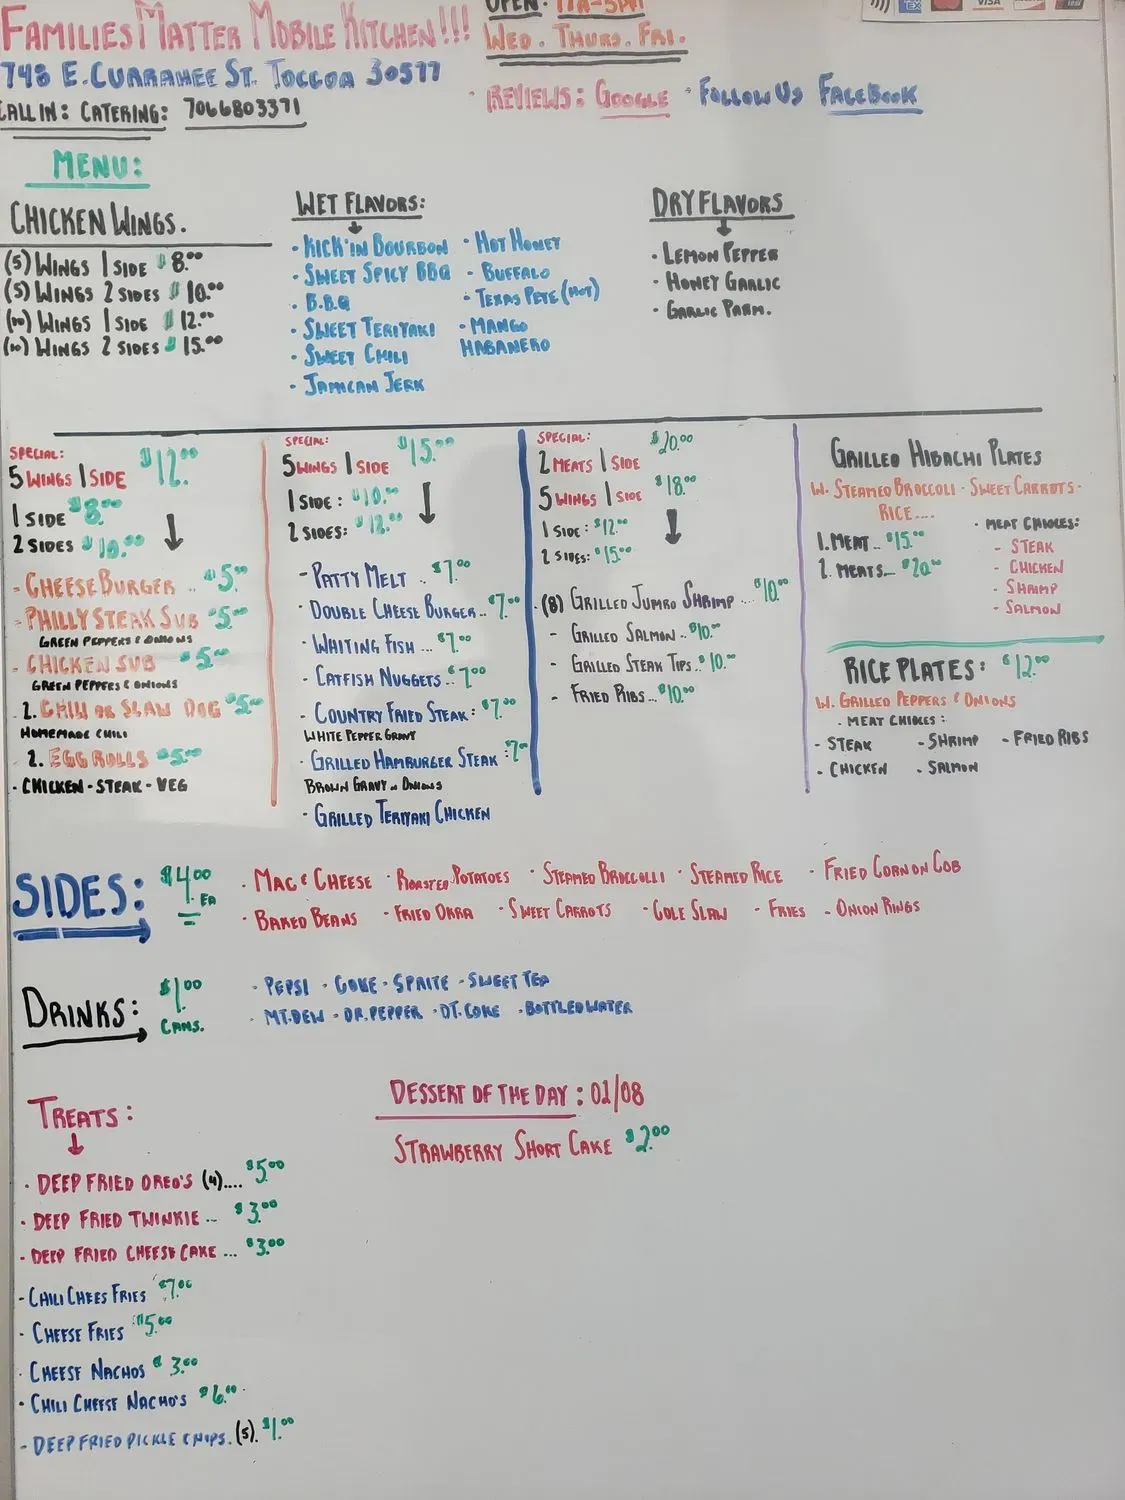 FAMILIES MATTER MOBILE KITCHEN!!!
OPEN: 11A-5PM
WED. THURS. FRI.
748 E. CURRAHEE ST. TOCCOA 30577
CALL IN: CATERING: 7066803371
· REVIEWS: GOOGLE · FOLLOW US FACEBOOK
VISA
MENU:
CHICKEN WINGS.
(5) WINGS 1 SIDE $8.00
(5) WINGS 2 SIDES $10.00
(10) WINGS 1 SIDE $12.00
(10) WINGS 2 SIDES $15.00
WET FLAVORS:
· KICK'IN BOURBON
· SWEET SPICY BBQ
· B.B.Q
· SWEET TERIYAKI
· SWEET CHILI
· JAMICAN JERK
· HOT HONEY
- BUFFALO
· TEXAS PETE (HOT)
· MANGO
HABANERO
DRY FLAVORS
· LEMON PEPPER
· HONEY GARLIC
· GARLIC PARM.
SPECIAL:
5 WINGS 1 SIDE $12.00
1 SIDE $8.00
2 SIDES $10.00
- CHEESEBURGER .. $5.00
- PHILLY STEAK SUB $5.00
GREEN PEPPERS & ONIONS
- CHICKEN SUB $5.00
GREEN PEPPERS & ONIONS
. 2. CHILI OR SLAW DOG $5.00
HOMEMADE CHILI
2. EGG ROLLS $5.00
· CHICKEN - STEAK - VEG
SPECIAL:
5 WINGS 1 SIDE $15.00
1 SIDE: $10.00
2 SIDES: $12.00
- PATTY MELT .. $7.00
· DOUBLE CHEESE BURGER.. $7.00
- WHAITING FISH ... $7.00
- CATFISH NUGGETS.. $7.00
- COUNTRY FRIED STEAK: $7.00
WHITE PEPPER GRAVY
- GRILLED HAMBURGER STEAK: $7.00
BROWN GRAVY & ONIONS
· GRILLED TERIYAKI CHICKEN
SPECIAL: $20.00
2 MEATS 1 SIDE
5 WINGS 1 SIDE $18.00
1 SIDE: $12.00
2 SIDES: $15.00
· (8) GRILLED JUMBO SHRIMP ... $10.00
- GRILLED SALMON.. $10.00
- GRILLED STEAK TIPS.. $10.00
- FRIED RIBS... $10.00
GRILLED HIBACHI PLATES
W. STEAMED BROCCOLI · SWEET CARROTS ·
RICE....
1. MEAT.. $15.00
2. MEATS... $20.00
· MEAT CHOICES:
- STEAK
- CHICKEN
- SHRIMP
- SALMON
RICE PLATES: $12.00
W. GRILLED PEPPERS & ONIONS
· MEAT CHOICES:
- STEAK - SHRIMP - FRIED RIBS
- CHICKEN · SALMON
SIDES: $4.00 EA
· MAC & CHEESE · ROASTED POTATOES · STEAMED BROCCOLLI · STEAMED RICE · FRIED CORN ON COB
· BAKED BEANS · FRIED OKRA · SWEET CARROTS · COLE SLAW - FRIES - ONION RINGS
DRINKS: $1.00 CANS.
· PEPSI · COKE · SPRITE · SWEET TEA
· MT. DEW · DR. PEPPER · DT. COKE · BOTTLED WATER
TREATS:
· DEEP FRIED OREO'S (4).... $5.00
· DEEP FRIED TWINKIE ... $3.00
· DEEP FRIED CHEESECAKE ... $3.00
- CHILI CHEES FRIES $7.00
· CHEESE FRIES $5.00
· CHEESE NACHOS $3.00
· CHILI CHEESE NACHO'S $6.00
- DEEP FRIED PICKLE CHIPS. (5). $1.00
DESSERT OF THE DAY: 01/08
STRAWBERRY SHORT CAKE $2.00